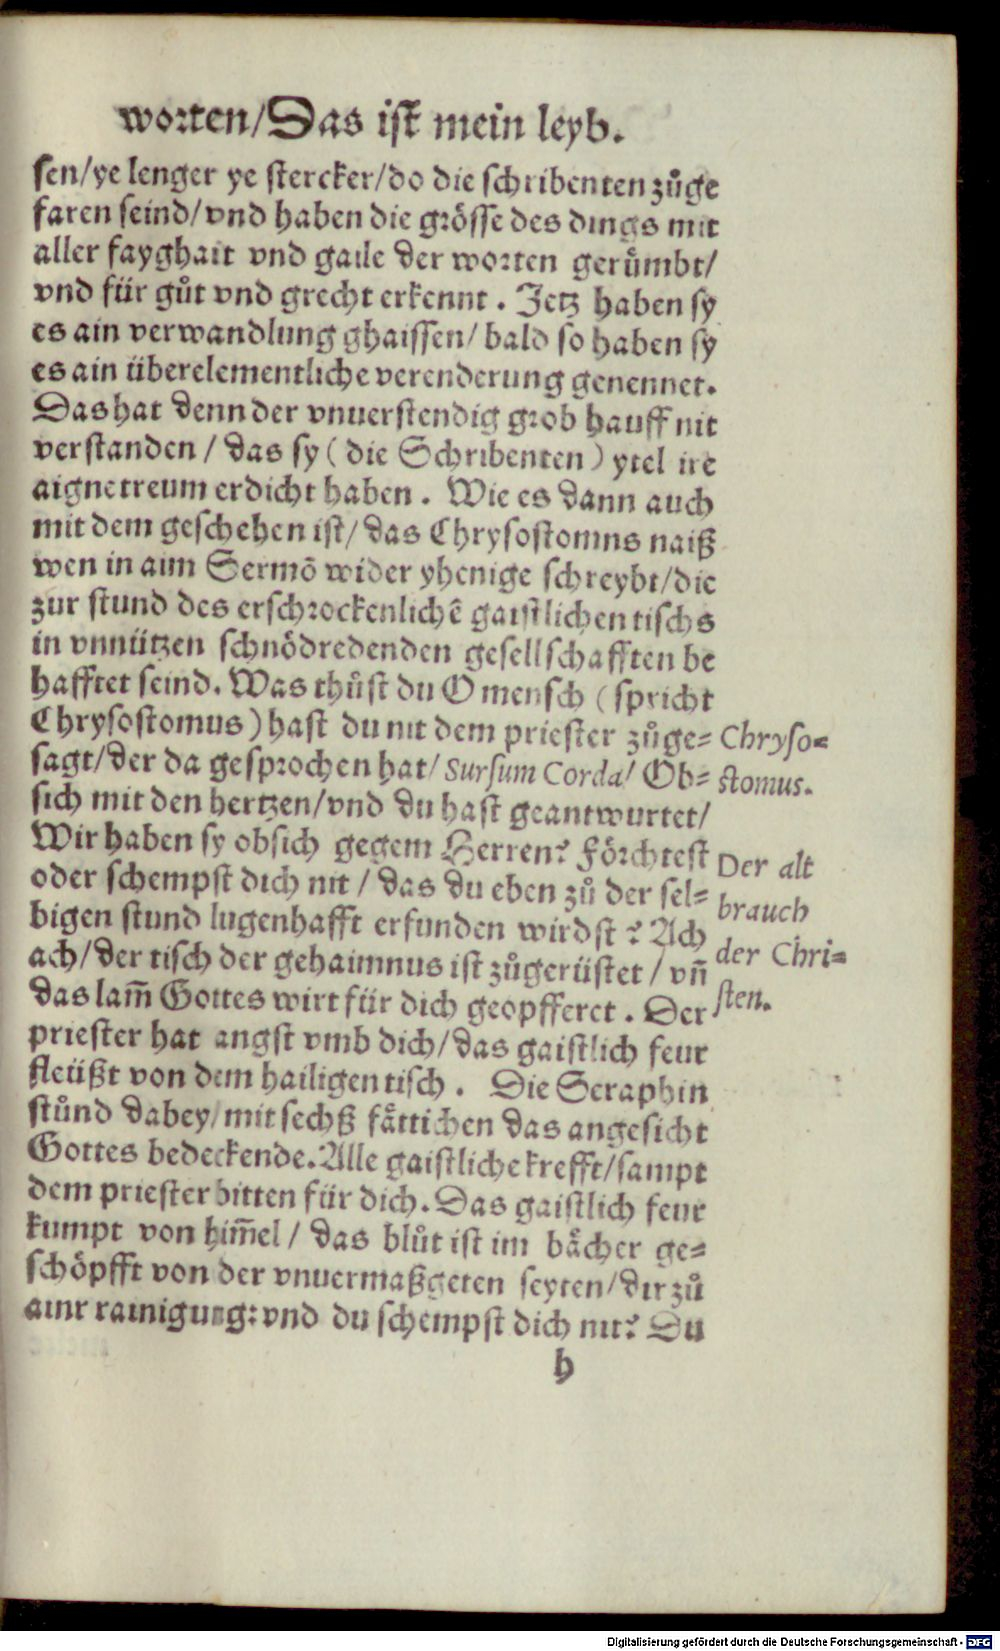 worten/Das ist mein leyb.
sen/ye lenger ye stercker/do die schribenten zůge
faren seind/vnd haben die grösse des dings mit
aller fayghait vnd gaile der worten gerůmbt/
vnd für gůt vnd grecht erkennt. Jetz haben sy
es ain verwandlung ghaissen/bald so haben sy
es ain überelementliche verenderung genennet.
Das hat denn der vnuerstendig grob hauff nit
verstanden/das sy (die Schribenten) ytel ire
aigne treum erdicht haben. Wie es dann auch
mit dem geschehen ist/das Chrysostomns naiß
wen in aim Sermõ wider yhenige schreybt/die
zur stund des erschrockenlichẽ gaistlichen tischs
in vnnützen schnödredenden gesellschafften be
hafftet seind. Was thůst du O mensch (spricht
Chrysostomus) hast du nit dem priester zůge=
Chryso=
sagt/der da gesprochen hat/Sursum Corda/Ob=
stomus.
sich mit den hertzen/vnd du hast geantwurtet/
Wir haben sy obsich gegem Herren? Förchtest
Der alt
oder schempst dich nit/das du eben zů der sel=
brauch
bigen stund lugenhafft erfunden wirdst? Ach
der Chri=
ach/der tisch der gehaimnus ist zůgerüstet/vñ
sten.
das lam̃ Gottes wirt für dich geopfferet. Der
priester hat angst vmb dich/das gaistlich feur
fleüßt von dem hailigen tisch. Die Seraphin
stůnd dabey/mit sechß fåttichen das angesicht
Gottes bedeckende. Alle gaistliche krefft/sampt
dem priester bitten für dich. Das gaistlich feur
kumpt von him̃el/das blůt ist im båcher ge=
schöpfft von der vnuermaßgeten seyten/dir zů
ainr rainigung: vnd du schempst dich nit? Du
h
Digitalisierung gefördert durch die Deutsche Forschungsgemeinschaft - DFG